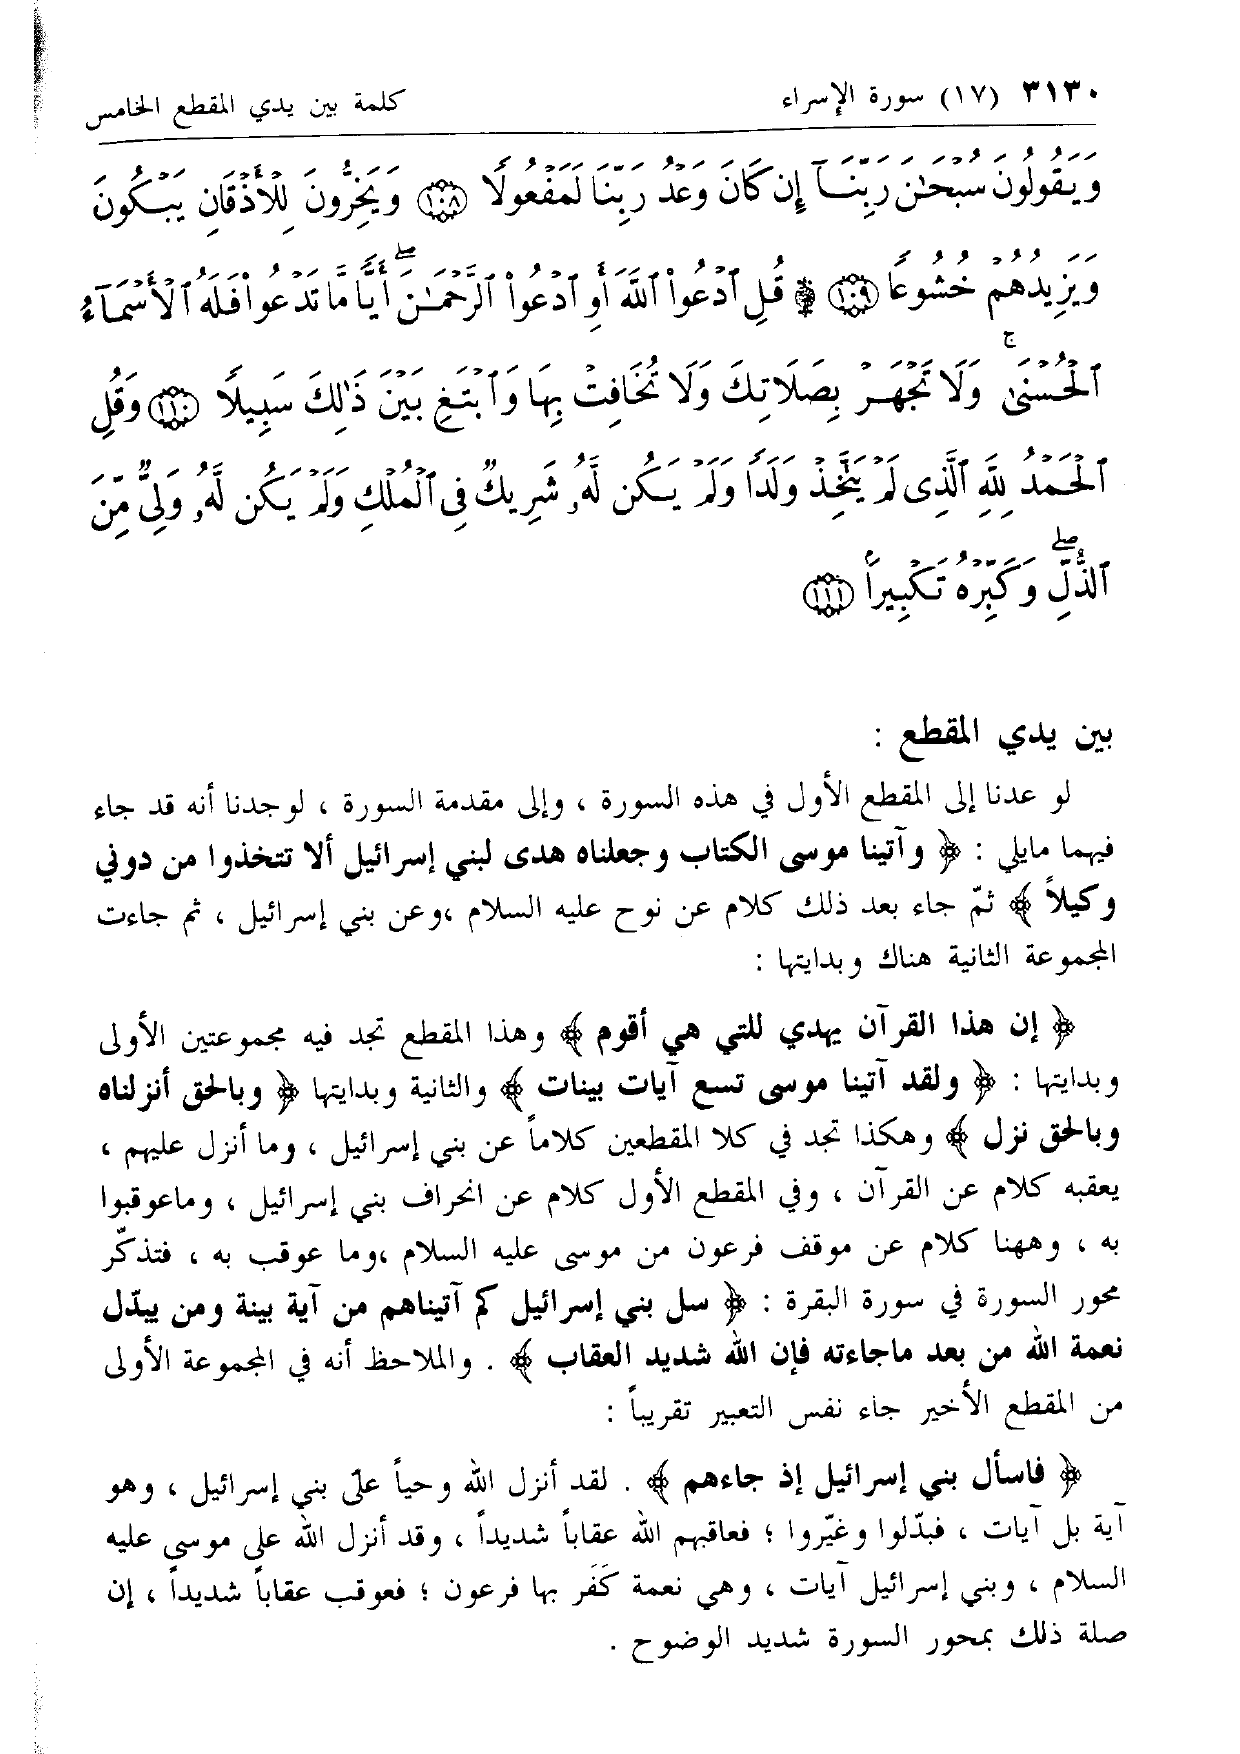 ٣١٣٠ (١٧) سورة الإسراء كلمة بين يدي المقطع الخامس
وَيَقُولُونَ سُبْحَٰنَ رَبِّنَآ إِن كَانَ وَعْدُ رَبِّنَا لَمَفْعُولًا ١٠٨ وَيَخِرُّونَ لِلْأَذْقَانِ يَبْكُونَ
وَيَزِيدُهُمْ خُشُوعًا ١٠٩ ۞ قُلِ ٱدْعُوا۟ ٱللَّهَ أَوِ ٱدْعُوا۟ ٱلرَّحْمَٰنَ ۖ أَيًّا مَّا تَدْعُوا۟ فَلَهُ ٱلْأَسْمَآءُ
ٱلْحُسْنَىٰ ۚ وَلَا تَجْهَرْ بِصَلَاتِكَ وَلَا تُخَافِتْ بِهَا وَٱبْتَغِ بَيْنَ ذَٰلِكَ سَبِيلًا ١١٠ وَقُلِ
ٱلْحَمْدُ لِلَّهِ ٱلَّذِى لَمْ يَتَّخِذْ وَلَدًا وَلَمْ يَكُن لَّهُۥ شَرِيكٌ فِى ٱلْمُلْكِ وَلَمْ يَكُن لَّهُۥ وَلِىٌّ مِّنَ
ٱلذُّلِّ ۖ وَكَبِّرْهُ تَكْبِيرًا ١١١
بين يدي المقطع :
لو عدنا إلى المقطع الأول في هذه السورة ، وإلى مقدمة السورة ، لوجدنا أنه قد جاء
فيهما مايلي : ﴿ وآتينا موسى الكتاب وجعلناه هدى لبني إسرائيل ألا تتخذوا من دوني
وكيلاً ﴾ ثمّ جاء بعد ذلك كلام عن نوح عليه السلام ،وعن بني إسرائيل ، ثم جاءت
المجموعة الثانية هناك وبدايتها :
﴿ إن هذا القرآن يهدي للتي هي أقوم ﴾ وهذا المقطع تجد فيه مجموعتين الأولى
وبدايتها : ﴿ ولقد آتينا موسى تسع آيات بينات ﴾ والثانية وبدايتها ﴿ وبالحق أنزلناه
وبالحق نزل ﴾ وهكذا تجد في كلا المقطعين كلاماً عن بني إسرائيل ، وما أنزل عليهم ،
يعقبه كلام عن القرآن ، وفي المقطع الأول كلام عن انحراف بني إسرائيل ، وماعوقبوا
به ، وههنا كلام عن موقف فرعون من موسى عليه السلام ،وما عوقب به ، فتذكّر
محور السورة في سورة البقرة : ﴿ سل بني إسرائيل كم آتيناهم من آية بينة ومن يبدّل
نعمة الله من بعد ماجاءته فإن الله شديد العقاب ﴾ . والملاحظ أنه في المجموعة الأولى
من المقطع الأخير جاء نفس التعبير تقريباً :
﴿ فاسأل بني إسرائيل إذ جاءهم ﴾ . لقد أنزل الله وحياً على بني إسرائيل ، وهو
آية بل آيات ، فبدّلوا وغيّروا ؛ فعاقبهم الله عقاباً شديداً ، وقد أنزل الله على موسى عليه
السلام ، وبني إسرائيل آيات ، وهي نعمة كَفَر بها فرعون ؛ فعوقب عقاباً شديداً ، إن
صلة ذلك بمحور السورة شديد الوضوح .